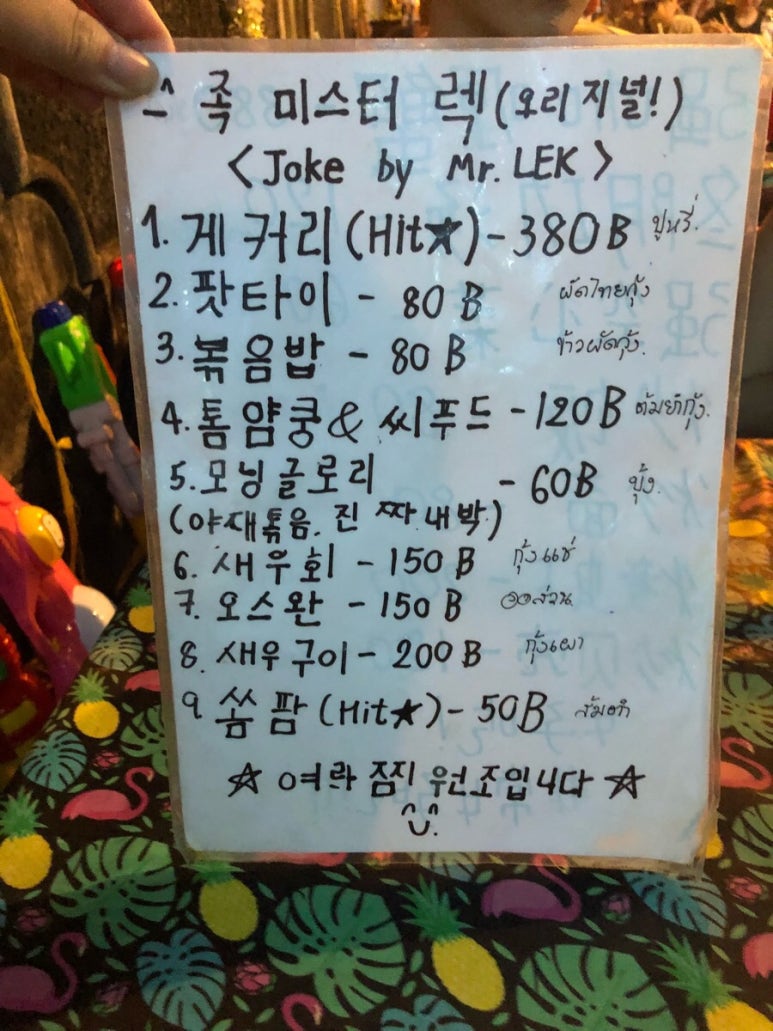 족 미스터 렉(오리지널!)
<Joke by Mr. LEK>
1. 게 커리(Hit★)-380B ปูหรี่.
2. 팟타이 - 80B ผัดไทยกุ้ง
3. 볶음밥 - 80B ข้าวผัดกุ้ง.
4. 톰얌쿵&씨푸드-120B ต้มยำกุ้ง.
5. 모닝글로리 - 60B บุ้ง.
(야채볶음. 진짜 대박)
6. 새우회-150B กุ้งแช่
7. 오스완-150B ออส่วน
8. 새우구이-200B กุ้งเผา
9 쏨팜(Hit★)-50B ส้มตำ
☆ 원조입니다 ☆